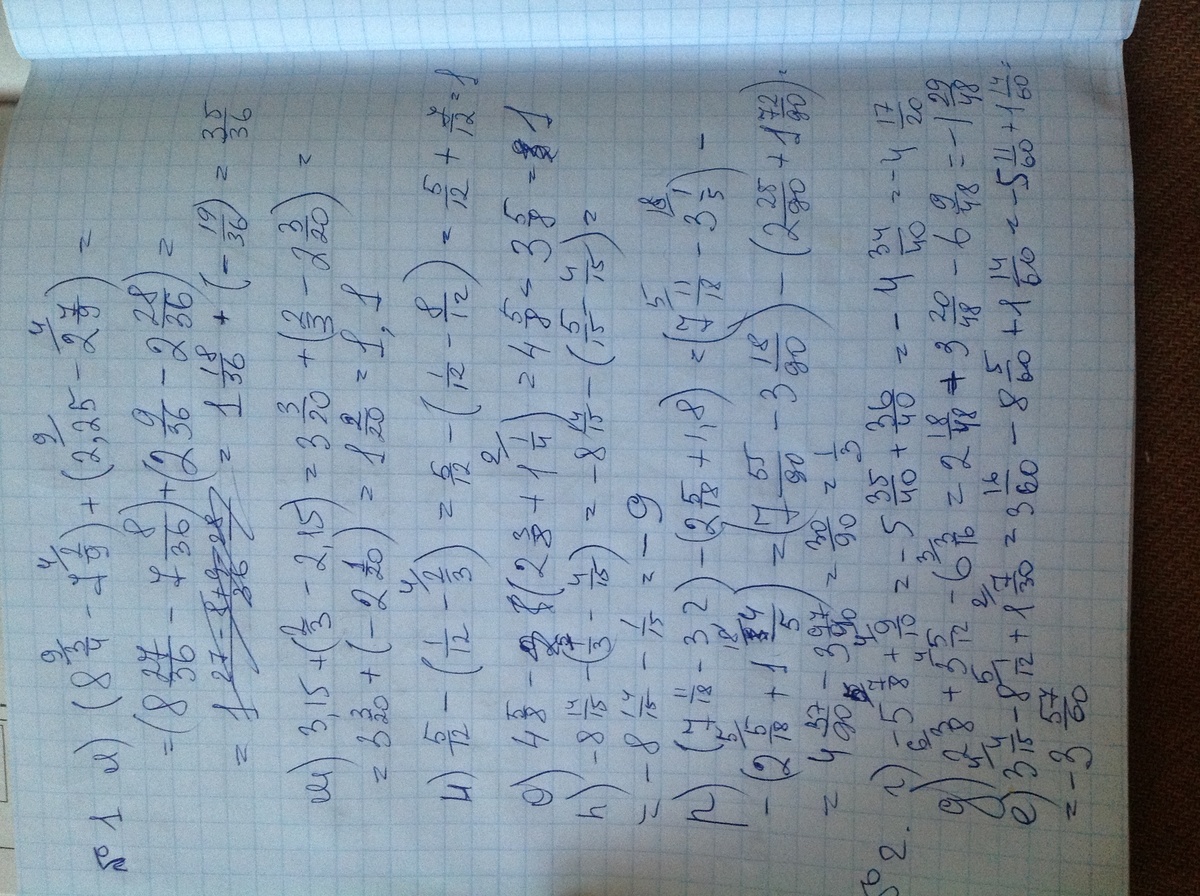 №1 л) (8 3/4 - 7 2/9) + (2,25 - 2 7/9) =
= (8 27/36 - 7 8/36) + (2 9/36 - 2 28/36) =
= 1 18/36 + (- 19/36) = 35/36
м) 3,15 + (2/3 - 2,15) = 3 3/20 + (2/3 - 2 3/20) =
= 3 3/20 + (-2 1/20) = 1 2/20 = 1,1
н) 5/12 - (1/12 - 2/3) = 5/12 - (1/12 - 8/12) = 5/12 + 7/12 = 1
о) 4 5/8 - (2 3/8 + 1 1/4) = 4 5/8 - 3 5/8 = 1
п) -8 14/15 - (1/3 - 4/15) = -8 14/15 - (5/15 - 4/15) =
= -8 14/15 - 1/15 = -9
р) (7 11/18 - 3,2) - (2 5/18 + 1,8) = (7 11/18 - 3 1/5) -
- (2 5/18 + 1 4/5) = (7 55/90 - 3 18/90) - (2 25/90 + 1 72/90) =
= 4 37/90 - 3 97/90 = 30/90 = 1/3
№2. г) -5 7/8 + 9/10 = -5 35/40 + 36/40 = -4 34/40 = -4 17/20
д) 2 3/8 + 3 5/12 - 6 3/16 = 2 18/48 + 3 20/48 - 6 9/48 = -1 29/48
е) 3 4/15 - 8 1/12 + 1 7/30 = 3 16/60 - 8 5/60 + 1 14/60 = -5 11/60 + 1 14/60 =
= -3 57/60